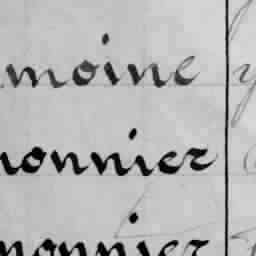 moine
nonnier
nonnier